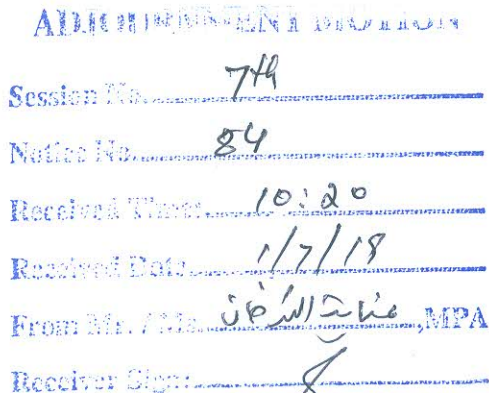 ADJOURNMENT MOTION
Session No. 7th
Notice No. 84
Received Time: 10:20
Received Date 1/7/18
From Mr. / Ms. عنایت اللہ خان ,MPA
Receiver Sign: